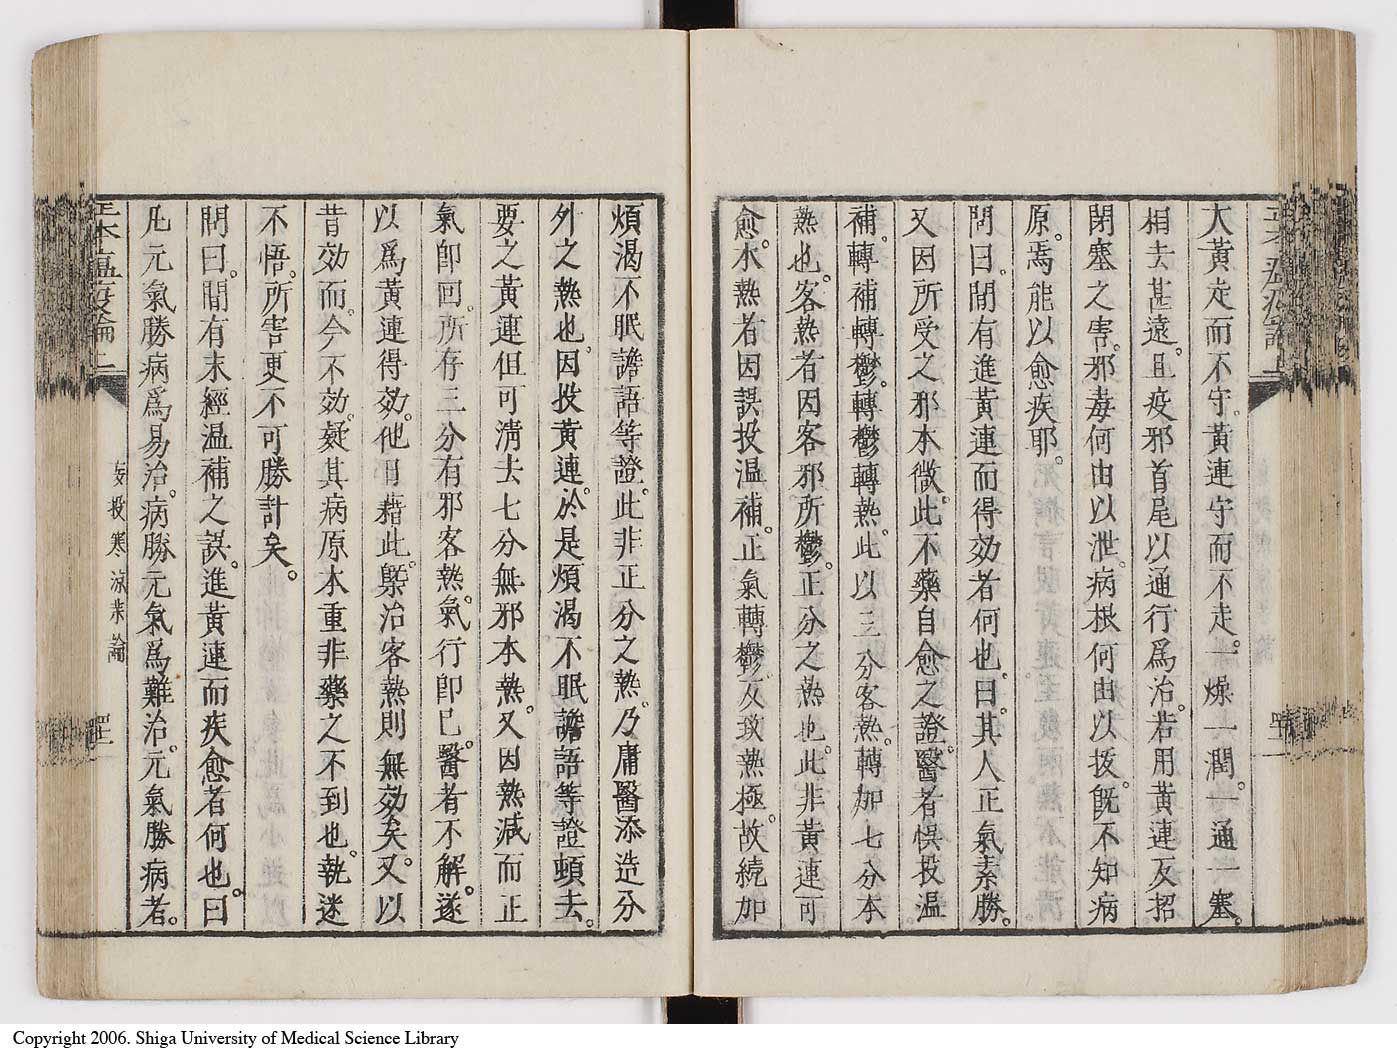 大黃走而不守。黃連守而不走。一燥一潤。一通一塞。
相去甚遠。且疫邪首尾以通行爲治。若用黃連反招
閉塞之害。邪毒何由以泄。病根何由以拔。旣不知病
原。焉能以愈疾耶。
問曰。間有進黃連而得効者何也。曰。其人正氣素勝。
又因所受之邪本微。此不藥自愈之證。醫者悞投温
補。轉補轉鬱。轉鬱轉熱。此以三分客熱。轉加七分本
熱也。客熱者因客邪所鬱。正分之熱也。此非黃連可
愈。本熱者因誤投温補。正氣轉鬱。反致熱極。故続加
煩渴不眠譫語等證。此非正分之熱。乃庸醫添造分
外之熱也。因投黃連。於是煩渴不眠譫語等證頓去。
要之黃連但可淸去七分無邪本熱。又因熱減而正
氣卽回。所存三分有邪客熱。氣行卽已。醫者不解。遂
以爲黃連得効。他日藉此。槩治客熱則無効矣。又以
昔効而今不効。疑其病原本重非藥之不到也。執迷
不悟。所害更不可勝計矣。
問曰。間有未經温補之誤。進黃連而疾愈者何也。曰
凡元氣勝病爲易治。病勝元氣爲難治。元氣勝病者。
妄投寒涼藥論
温疫論上
Copyright 2006. Shiga University of Medical Science Library